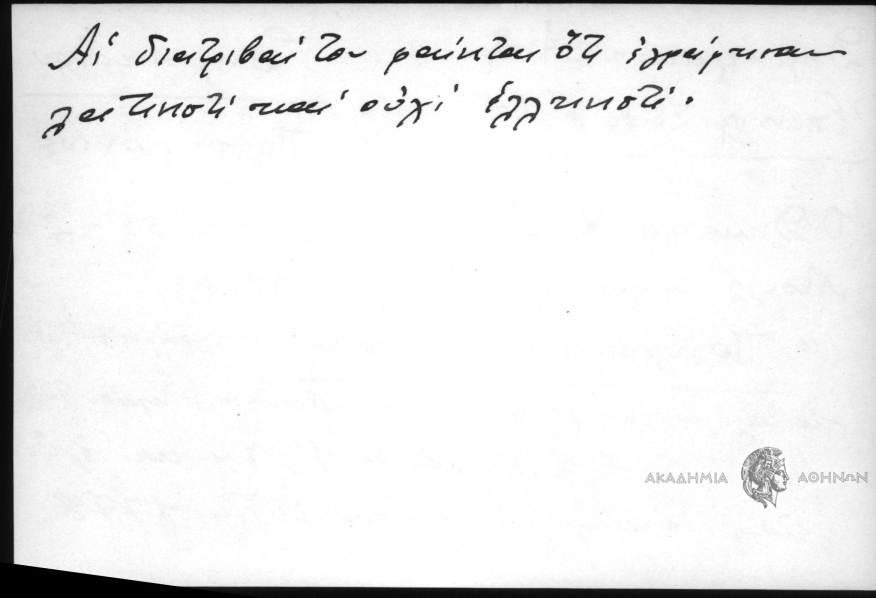 Αἱ διατριβαί του φαίνεται ὅτι ἐγράφησαν
λατινιστὶ καὶ οὐχὶ ἑλληνιστί.
ΑΚΑΔΗΜΙΑ ΑΘΗΝΩΝ